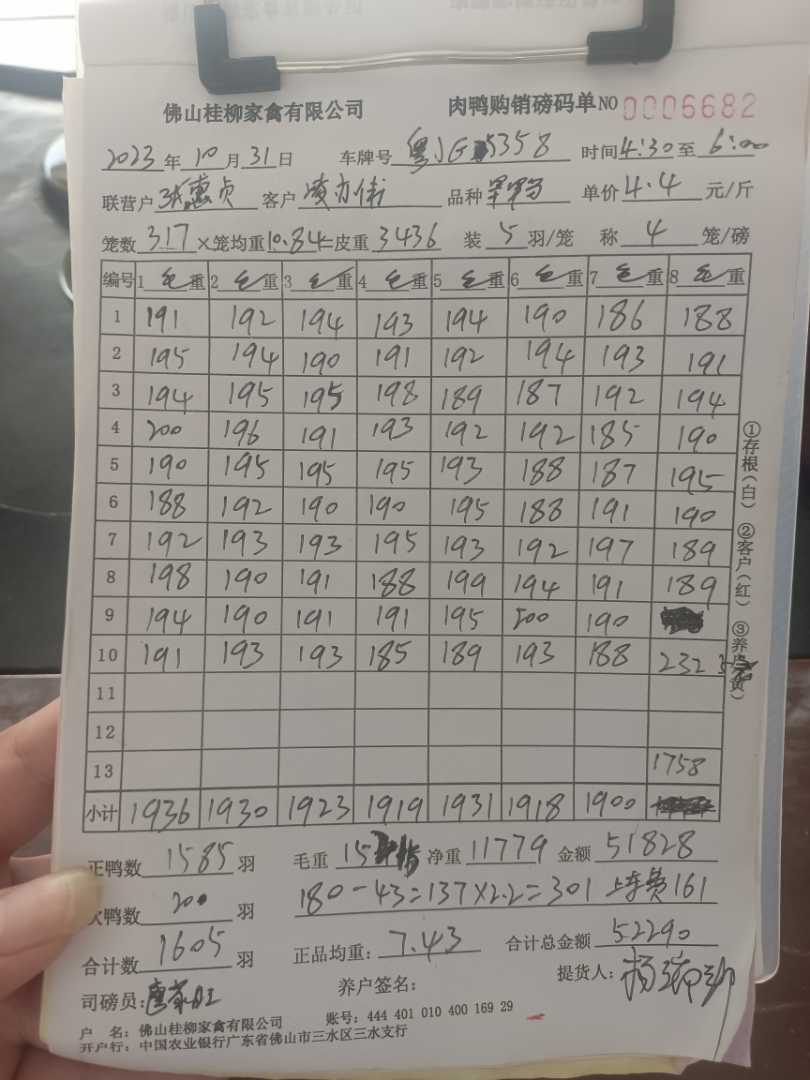 佛山桂柳家禽有限公司 肉鸭购销磅码单 NO 0006682
2023年10月31日 车牌号 粤JG5358 时间4:30至6:00
联营户 张惠贞 客户 品种 单价4.4元/斤
笼数317×笼均重10.84=皮重3436 装5羽/笼 称4笼/磅
编号 1毛重 2毛重 3毛重 4毛重 5毛重 6毛重 7毛重 8毛重
1 191 192 194 193 194 190 186 188
2 195 194 190 191 192 194 193 191
3 194 195 195 198 189 187 192 194
4 200 196 191 193 192 192 185 190
5 190 195 195 195 193 188 187 195
6 188 192 190 190 195 188 191 190
7 192 193 193 195 193 192 197 189
8 198 190 191 188 199 194 191 189
9 194 190 191 191 195 200 190
10 191 193 193 185 189 193 188 232
11
12
13 1758
小计 1936 1930 1923 1919 1931 1918 1900
正鸭数1585羽 毛重 净重11779 金额51828
次鸭数200羽 180-43=137×2.2=301 上车费161
合计数1605羽 正品均重:7.43 合计总金额52290
司磅员: 养户签名: 提货人:
户 名:佛山桂柳家禽有限公司 账号:444 401 010 400 169 29
开户行:中国农业银行广东省佛山市三水区三水支行
①存根(白) ②客户(红) ③养户(黄)